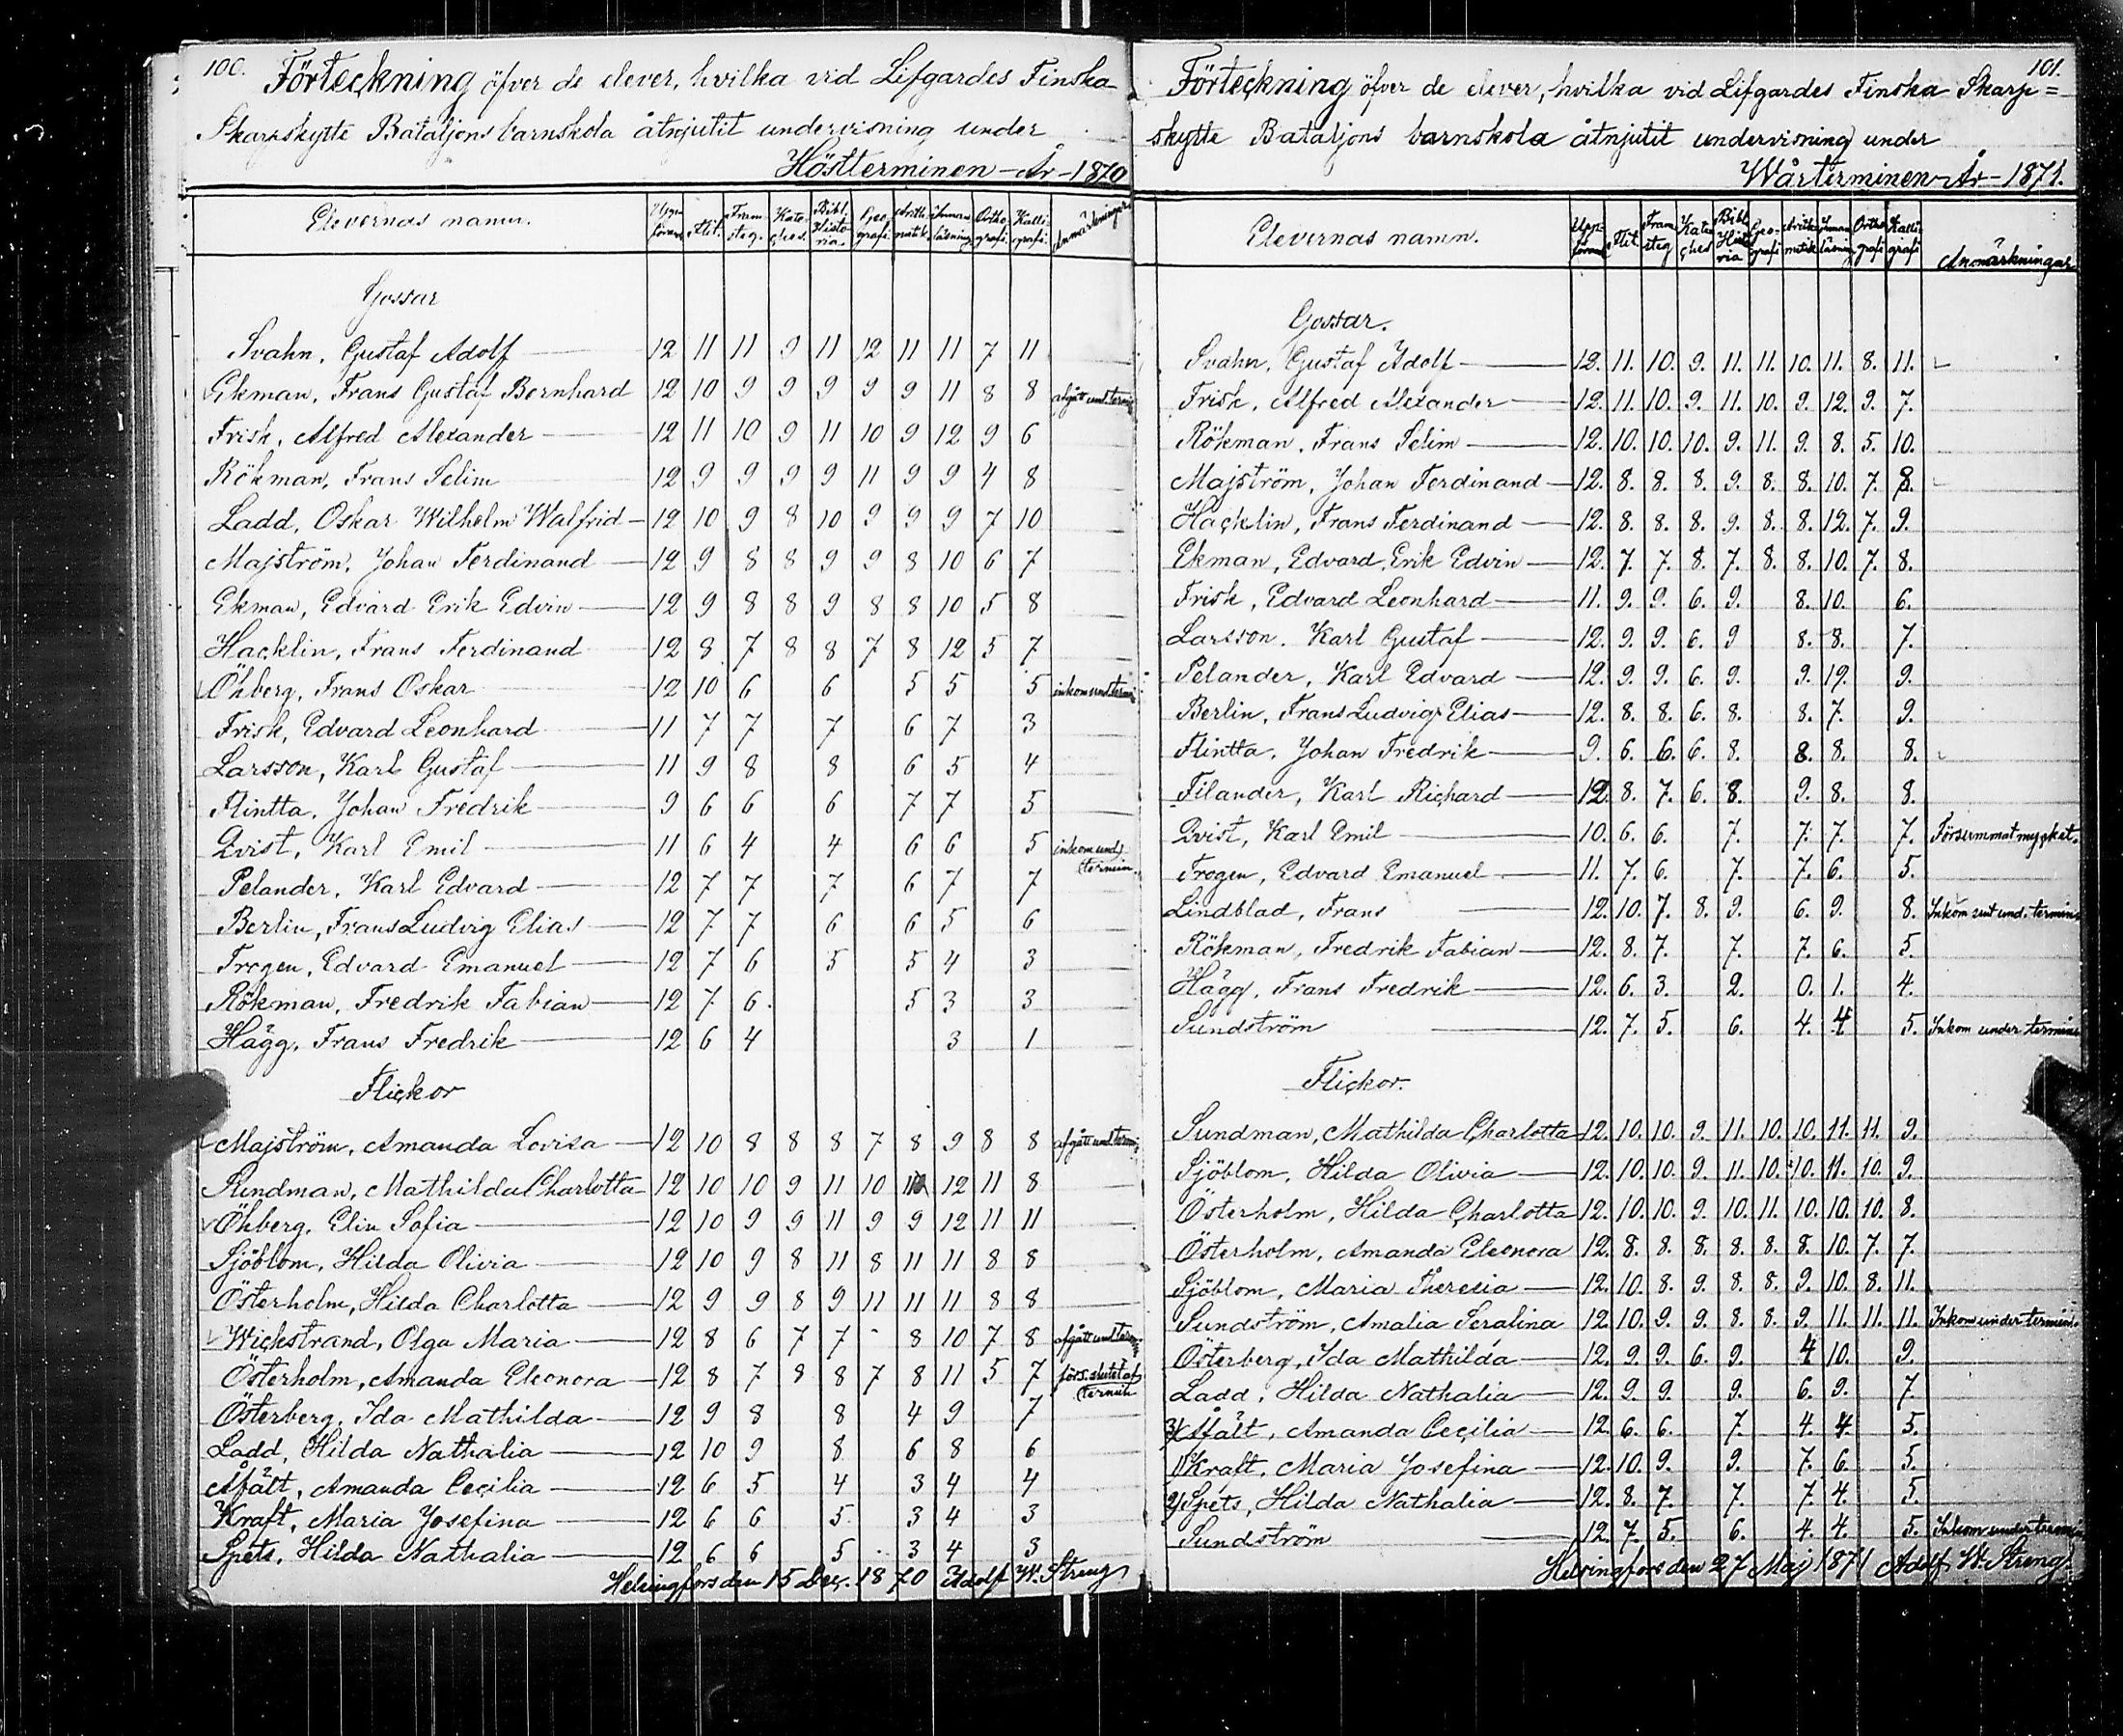 100.
Förteckning öfver de elever, hvilka vid Lifgardes Finska
Skarpskytte Bataljons barnskola åtnjutit undervisning under
Höstterminen – År – 1870
Elevernas namn. Upp-förande Flit. Fram-steg. Kate-ches. Bibl. Histo-ria. Geo-grafi. Arith-matik. Innan-läsning Ortho-grafi. Kalli-grafi. Anmärkningar
Gossar
Svahn, Gustaf Adolf 12 11 11 9 11 12 11 11 7 11
Ekman, Frans Gustaf Bernhard 12 10 9 9 9 9 9 11 8 8 afgått und. termin
Frisk, Alfred Alexander 12 11 10 9 11 10 9 12 9 6
Rökman, Frans Selim 12 9 9 9 9 11 9 9 4 8
Ladd, Oskar Wilhelm Walfrid 12 10 9 8 10 9 9 9 7 10
Majström, Johan Ferdinand 12 9 8 8 9 9 8 10 6 7
Ekman, Edvard Erik Edvin 12 9 8 8 9 8 8 10 5 8
Hacklin, Frans Ferdinand 12 8 7 8 8 7 8 12 5 7
Öhberg, Frans Oskar 12 10 6 6 5 5 5 inkom und. termin
Frisk, Edvard Leonhard 11 7 7 7 6 7 3
Larsson, Karl Gustaf 11 9 8 8 6 5 4
Flintta, Johan Fredrik 9 6 6 6 7 7 5
Qvist, Karl Emil 11 6 4 4 6 6 5 inkom und. termin.
Pelander, Karl Edvard 12 7 7 7 6 7 7
Berlin, Frans Ludvig Elias 12 7 7 6 6 5 6
Trogen, Edvard Emanuel 12 7 6 5 5 4 3
Rökman, Fredrik Fabian 12 7 6. 5 3 3
Hägg, Frans Fredrik 12 6 4 3 1
Flickor
Majström, Amanda Lovisa 12 10 8 8 8 7 8 9 8 8 afgått und. termin
Sundman, Mathilda Charlotta 12 10 10 9 11 10 12 11 8
Öhberg, Elin Sofia 12 10 9 9 11 9 9 12 11 11
Sjöblom, Hilda Olivia 12 10 9 8 11 8 11 11 8 8
Österholm, Hilda Charlotta 12 9 9 8 9 11 11 11 8 8
Wickstrand, Olga Maria 12 8 6 7 7 - 8 10 7 8 afgått und. termin
Österholm, Amanda Eleonora 12 8 7 8 8 7 8 11 5 7 förs. slutet af termin
Österberg, Ida Mathilda 12 9 8 8 4 9 7
Ladd, Hilda Nathalia 12 10 9 8 6 8 6
Afält, Amanda Cecilia 12 6 5 4 3 4 4
Kraft, Maria Josefina 12 6 6 5 3 4 3
Spets, Hilda Nathalia 12 6 6 5 3 4 3
Helsingfors den 15 Dec. 1870 Adolf W. Streng
101.
Förteckning öfver de elever, hvilka vid Lifgardes Finska Skarp=
skytte Bataljons barnskola åtnjutit undervisning under
Wårterminen År – 1871.
Elevernas namn. Upp-förande Flit. Fram-steg Kate-ches Bibl. Histo-ria Geo-grafi Arith-matik Innan-läsning Ortho-grafi Kalli-grafi Anmärkningar
Gossar.
Svahn, Gustaf Adolf 12. 11. 10. 9. 11. 11. 10. 11. 8. 11.
Frisk, Alfred Alexander 12. 11. 10. 9. 11. 10. 9. 12. 9. 7.
Rökman, Frans Selim 12. 10. 10. 10. 9. 11. 9. 8. 5. 10.
Majström, Johan Ferdinand 12. 8. 8. 8. 9. 8. 8. 10. 7. 8.
Hacklin, Frans Ferdinand 12. 8. 8. 8. 9. 8. 8. 12. 7. 9.
Ekman, Edvard Erik Edvin 12. 7. 7. 8. 7. 8. 8. 10. 7. 8.
Frisk, Edvard Leonhard 11. 9. 9. 6. 9. 8. 10. 6.
Larsson, Karl Gustaf 12. 9. 9. 6. 9 8. 8. 7.
Pelander, Karl Edvard 12. 9. 9. 6. 9. 9. 19. 9.
Berlin, Frans Ludvig Elias 12. 8. 8. 6. 8. 8. 7. 9.
Flintta, Johan Fredrik 9. 6. 6. 6. 8. 8. 8. 8.
Filander, Karl Richard 12. 8. 7. 6. 8. 9. 8. 8.
Qvist, Karl Emil 10. 6. 6. 7. 7. 7. 7. Försummat mycket.
Trogen, Edvard Emanuel 11. 7. 6. 7. 7. 6. 5.
Lindblad, Frans 12. 10. 7. 8. 9. 6. 9. 8. Inkom und. termin
Rökman, Fredrik Fabian 12. 8. 7. 7. 7. 6. 5.
Hägg, Frans Fredrik 12. 6. 3. 2. 0. 1. 4.
Sundström 12. 7. 5. 6. 4. 4 5. Inkom under termin
Flickor.
Sundman, Mathilda Charlotta 12. 10. 10. 9. 11. 10. 10. 11. 11. 9.
Sjöblom, Hilda Olivia 12. 10. 10. 9. 11. 10. 10. 11. 10. 9.
Österholm, Hilda Charlotta 12. 10. 10. 9. 10. 11. 10. 10. 10. 8.
Österholm, Amanda Eleonora 12. 8. 8. 8. 8. 8. 8. 10. 7. 7.
Sjöblom, Maria Theresia 12. 10. 8. 9. 8. 8. 9. 10. 8. 11.
Sundström, Amalia Serafina 12. 10. 9. 9. 8. 8. 9. 11. 11. 11. Inkom under termin.
Österberg, Ida Mathilda 12. 9. 9. 6. 9. 4 10. 9.
Ladd, Hilda Nathalia 12. 9. 9. 9. 6. 9. 7
3) Afält, Amanda Cecilia 12. 6. 6. 7. 4. 4. 5.
1) Kraft, Maria Josefina 12. 10. 9. 9. 7. 6. 5.
2) Spets, Hilda Nathalia 12. 8. 7. 7. 7. 4. 5.
Sundström 12. 7. 5. 6. 4. 4. 5. Inkom under termin
Helsingfors den 27 Maj 1871 Adolf W. Streng